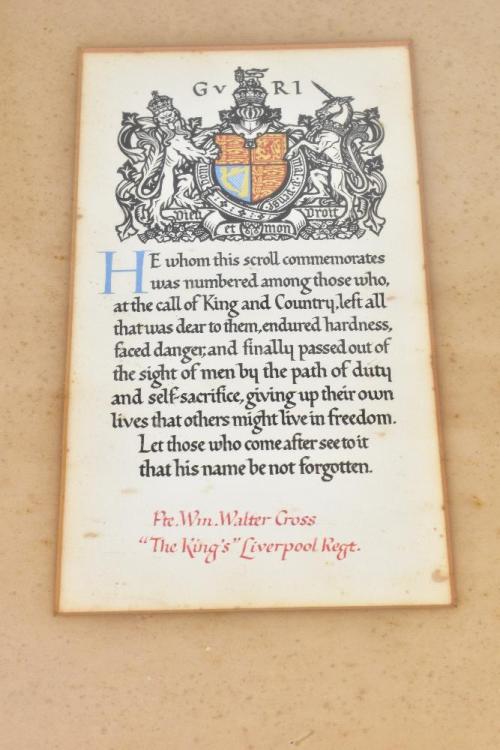 GV RI
Dieu et mon Droit
HE whom this scroll commemorates
was numbered among those who,
at the call of King and Country, left all
that was dear to them, endured hardness,
faced danger, and finally passed out of
the sight of men by the path of duty
and self-sacrifice, giving up their own
lives that others might live in freedom.
Let those who come after see to it
that his name be not forgotten.
Pte. Wm. Walter Cross
"The King's" Liverpool Regt.